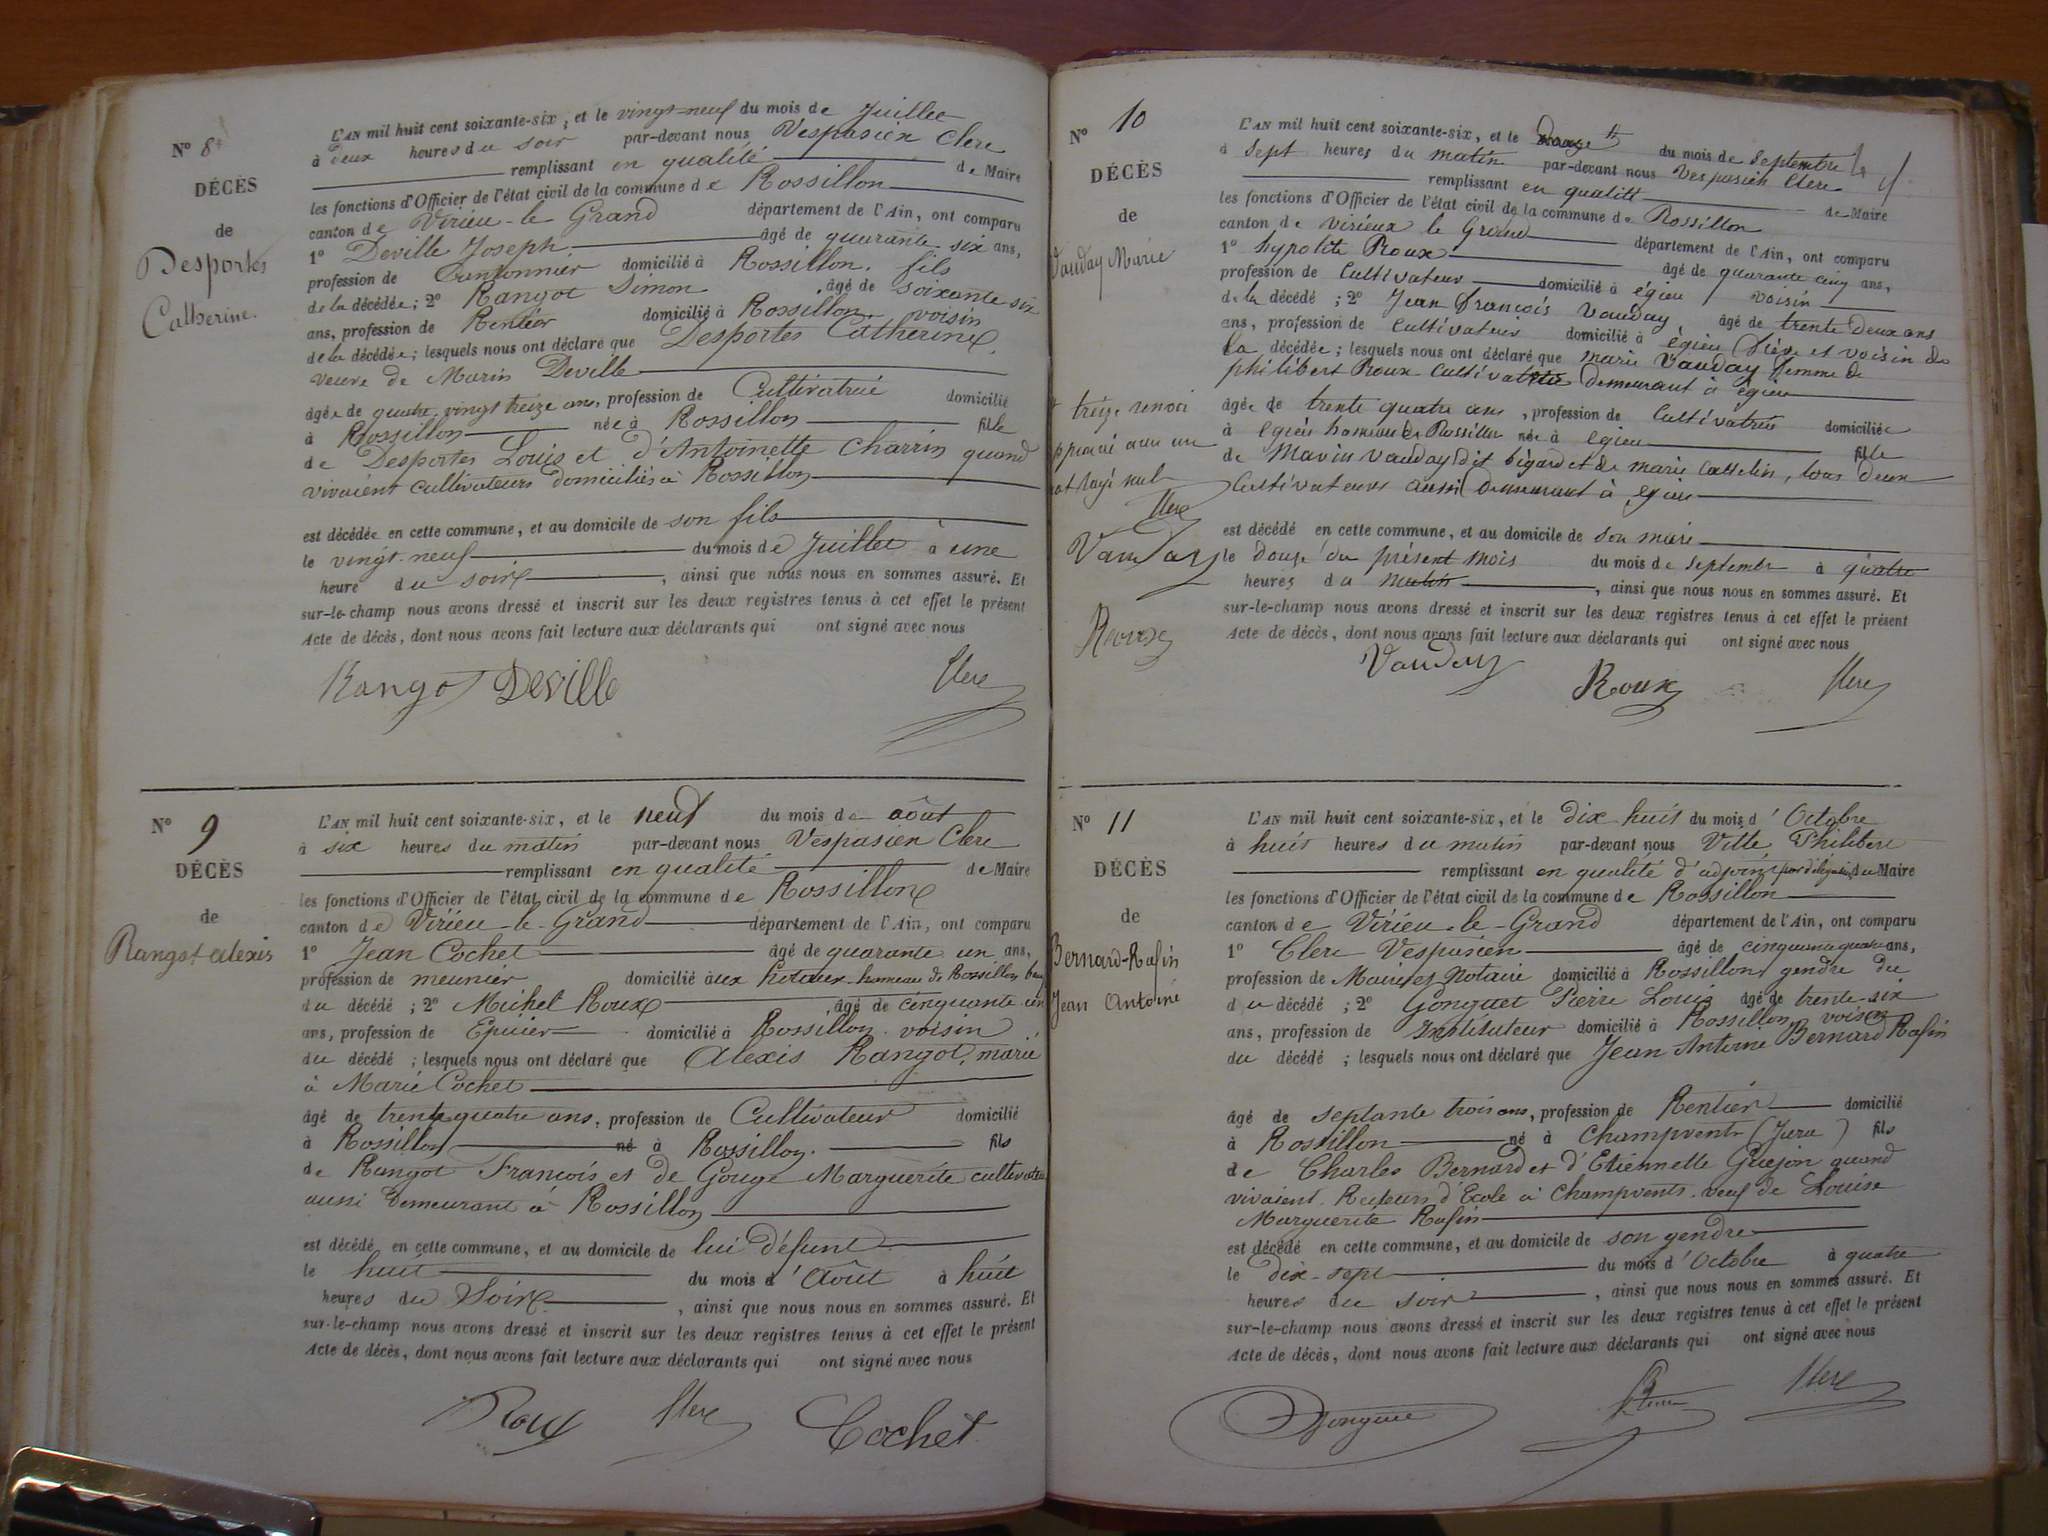 N° 8
DÉCÈS
de
Desportes
Catherine.
L'AN mil huit cent soixante-six, et le vingt-neuf du mois de Juillet
à deux heures du soir par-devant nous Vespasien Clerc
remplissant en qualité de Maire
les fonctions d'Officier de l'état civil de la commune de Rossillon
canton de Virieu-le Grand département de l'Ain, ont comparu
1° Deville Joseph âgé de quarante-six ans,
profession de Cantonnier domicilié à Rossillon. fils
de la décédée; 2° Rangot Simon âgé de soixante six
ans, profession de Rentier domicilié à Rossillon voisin
de la décédée; lesquels nous ont déclaré que Desportes Catherine,
veuve de Marin Deville
âgée de quatre vingt treize ans, profession de Cultivatrice domicilié
à Rossillon née à Rossillon fille
de Desportes Louis et d'Antoinette Charrin quand
vivaient cultivateurs domiciliés à Rossillon
est décédée en cette commune, et au domicile de son fils
le vingt-neuf du mois de Juillet à une
heure du soir, ainsi que nous nous en sommes assuré. Et
sur-le-champ nous avons dressé et inscrit sur les deux registres tenus à cet effet le présent
Acte de décès, dont nous avons fait lecture aux déclarants qui ont signé avec nous
Rangot Deville Clerc
N° 9
DÉCÈS
de
Rangot alexis
L'AN mil huit cent soixante-six, et le neuf du mois de août
à six heures du matin par-devant nous Vespasien Clerc
remplissant en qualité de Maire
les fonctions d'Officier de l'état civil de la commune de Rossillon
canton de Virieu-le-Grand département de l'Ain, ont comparu
1° Jean Cochet âgé de quarante un ans,
profession de meunier domicilié aux hameau de Rossillon
du décédé; 2° Michel Roux, âgé de cinquante un
ans, profession de Epicier domicilié à Rossillon voisin
du décédé; lesquels nous ont déclaré que Alexis Rangot, marié
à Marie Cochet
âgé de trente quatre ans, profession de Cultivateur domicilié
à Rossillon né à Rossillon. fils
de Rangot François et de Gouge Marguerite cultivateurs
aussi demeurant à Rossillon
est décédé en cette commune, et au domicile de lui défunt
le huit du mois d'Août à huit
heures du Soir, ainsi que nous nous en sommes assuré. Et
sur-le-champ nous avons dressé et inscrit sur les deux registres tenus à cet effet le présent
Acte de décès, dont nous avons fait lecture aux déclarants qui ont signé avec nous
Roux Clerc Cochet
N° 10
DÉCÈS
de
Vauday Marie
treize
Clerc
Vauday
Roux
L'AN mil huit cent soixante-six, et le du mois de septembre
à sept heures du matin par-devant nous Vespasien Clerc
remplissant en qualité de Maire
les fonctions d'Officier de l'état civil de la commune de Rossillon
canton de virieux le Grand département de l'Ain, ont comparu
1° hypolite Roux âgé de quarante cinq ans,
profession de Cultivateur domicilié à égieu voisin
de la décédé; 2° Jean François Vauday âgé de trente deux ans
ans, profession de cultivateur domicilié à égieu frère et voisin de
la décédée; lesquels nous ont déclaré que marie Vauday femme de
philibert Roux cultivateur demeurant à égieu
âgée de trente quatre ans, profession de Cultivatrice domiciliée
à égieu hameau de Rossillon née à égieu fille
de Marin Vauday dit bégard et de marie Cattelin, tous deux
Cultivateurs aussi demeurant à égieu
est décédé en cette commune, et au domicile de son mari
le douze du présent mois du mois de septembre à quatre
heures du matin, ainsi que nous nous en sommes assuré. Et
sur-le-champ nous avons dressé et inscrit sur les deux registres tenus à cet effet le présent
Acte de décès, dont nous avons fait lecture aux déclarants qui ont signé avec nous
Vauday Roux Clerc
N° 11
DÉCÈS
de
Bernard-Rafin
Jean Antoine
L'AN mil huit cent soixante-six, et le dix huit du mois d'Octobre
à huit heures du matin par-devant nous Vitte Philibert
remplissant en qualité d'adjoint par délégation du Maire
les fonctions d'Officier de l'état civil de la commune de Rossillon
canton de Virieu-le-Grand département de l'Ain, ont comparu
1° Clerc Vespasien âgé de cinquante quatre ans,
profession de Maire et Notaire domicilié à Rossillon gendre du
du décédé; 2° Gonguet Pierre Louis âgé de trente-six
ans, profession de Instituteur domicilié à Rossillon, voisin
du décédé; lesquels nous ont déclaré que Jean Antoine Bernard Rafin
âgé de septante trois ans, profession de Rentier domicilié
à Rossillon né à Champvents (Jura) fils
de Charles Bernard et d'Etiennette Guejon quand
vivaient Recteurs d'Ecole à Champvents. veuf de Louise
Marguerite Rafin
est décédé en cette commune, et au domicile de son gendre
le dix-sept du mois d'Octobre à quatre
heures du soir, ainsi que nous nous en sommes assuré. Et
sur-le-champ nous avons dressé et inscrit sur les deux registres tenus à cet effet le présent
Acte de décès, dont nous avons fait lecture aux déclarants qui ont signé avec nous
Clerc